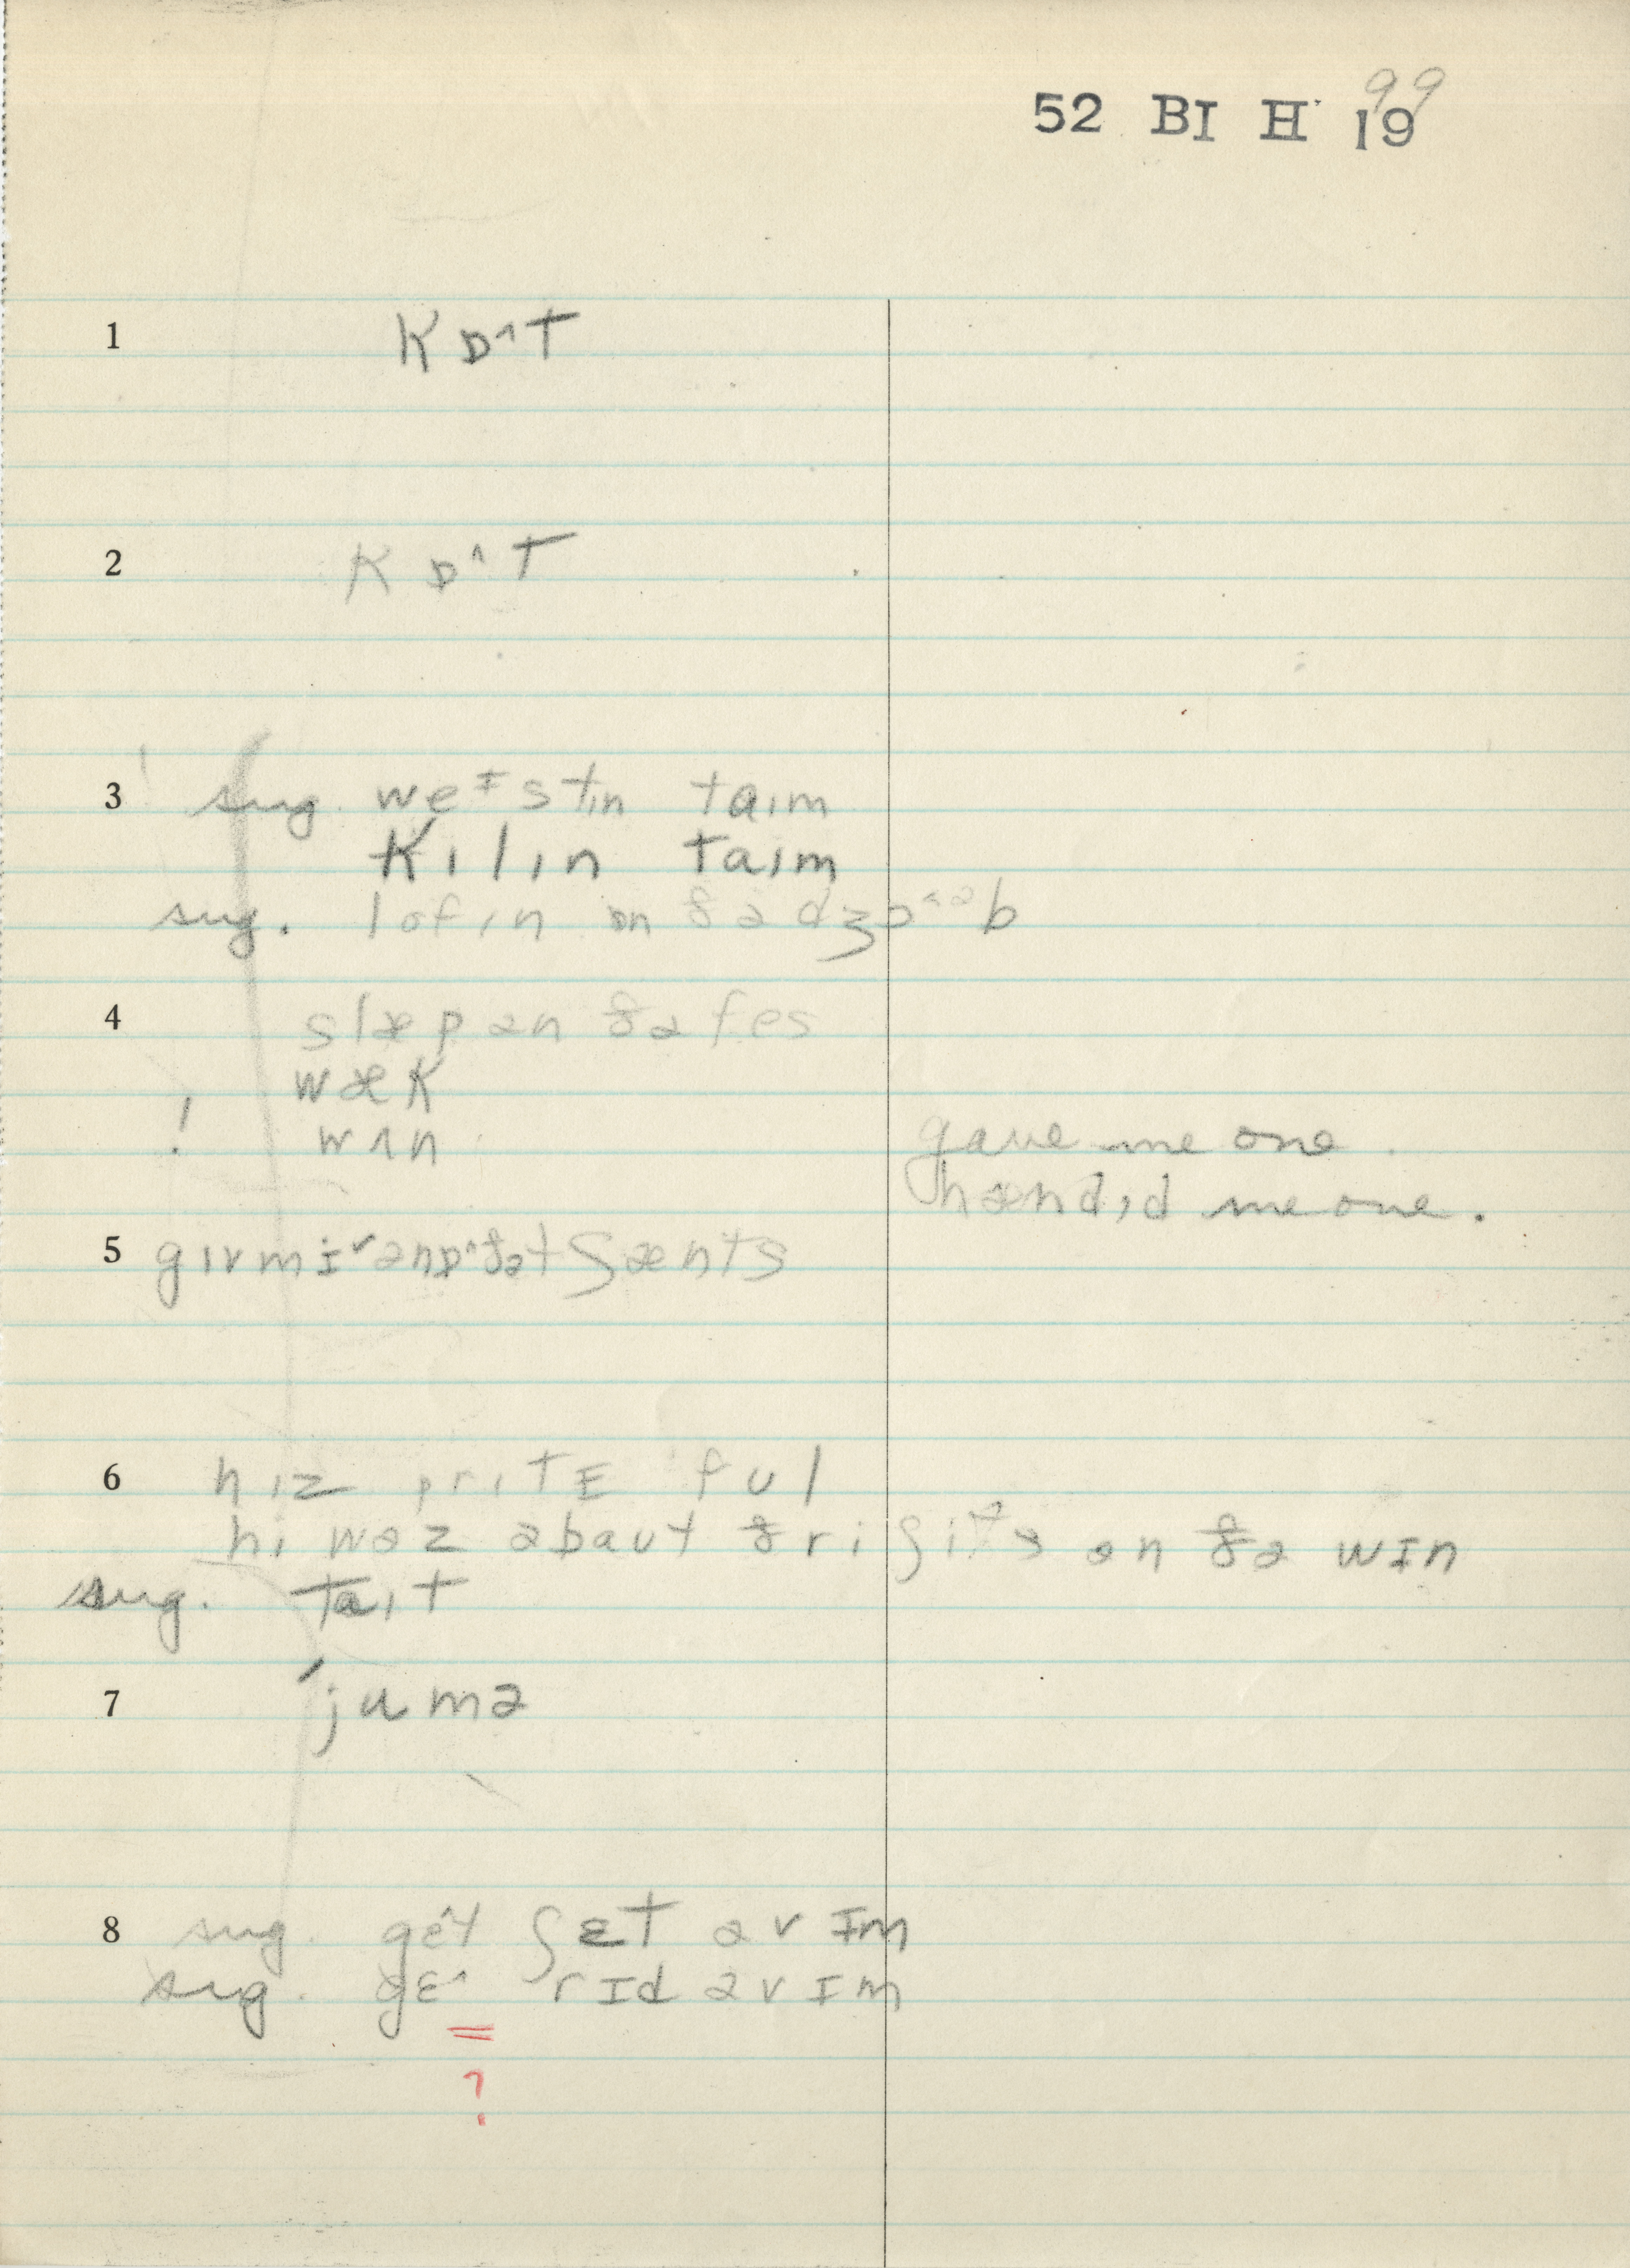 99
52 BI H 19
1 kɒ^t
2 kɒ^t
3 sug. weᶦstɪn taɪm
kɪlɪn taɪm
sug. lofɪn ɒn ðə dʒɒ^əb
4 slæp ən ðə fes
wæk
! wʌn gave me one.
hændɪd me one.
5 gɪv mi
6 hɪz prɪtɪ ful
hi wəz əbaut ðri ʃits ən ðə wɪn
sug. taɪt
7 ˈjumə
8 sug. gɛt ʃɛt əv ɪm
sug. gɛ^ rɪd əv ɪm
=
?